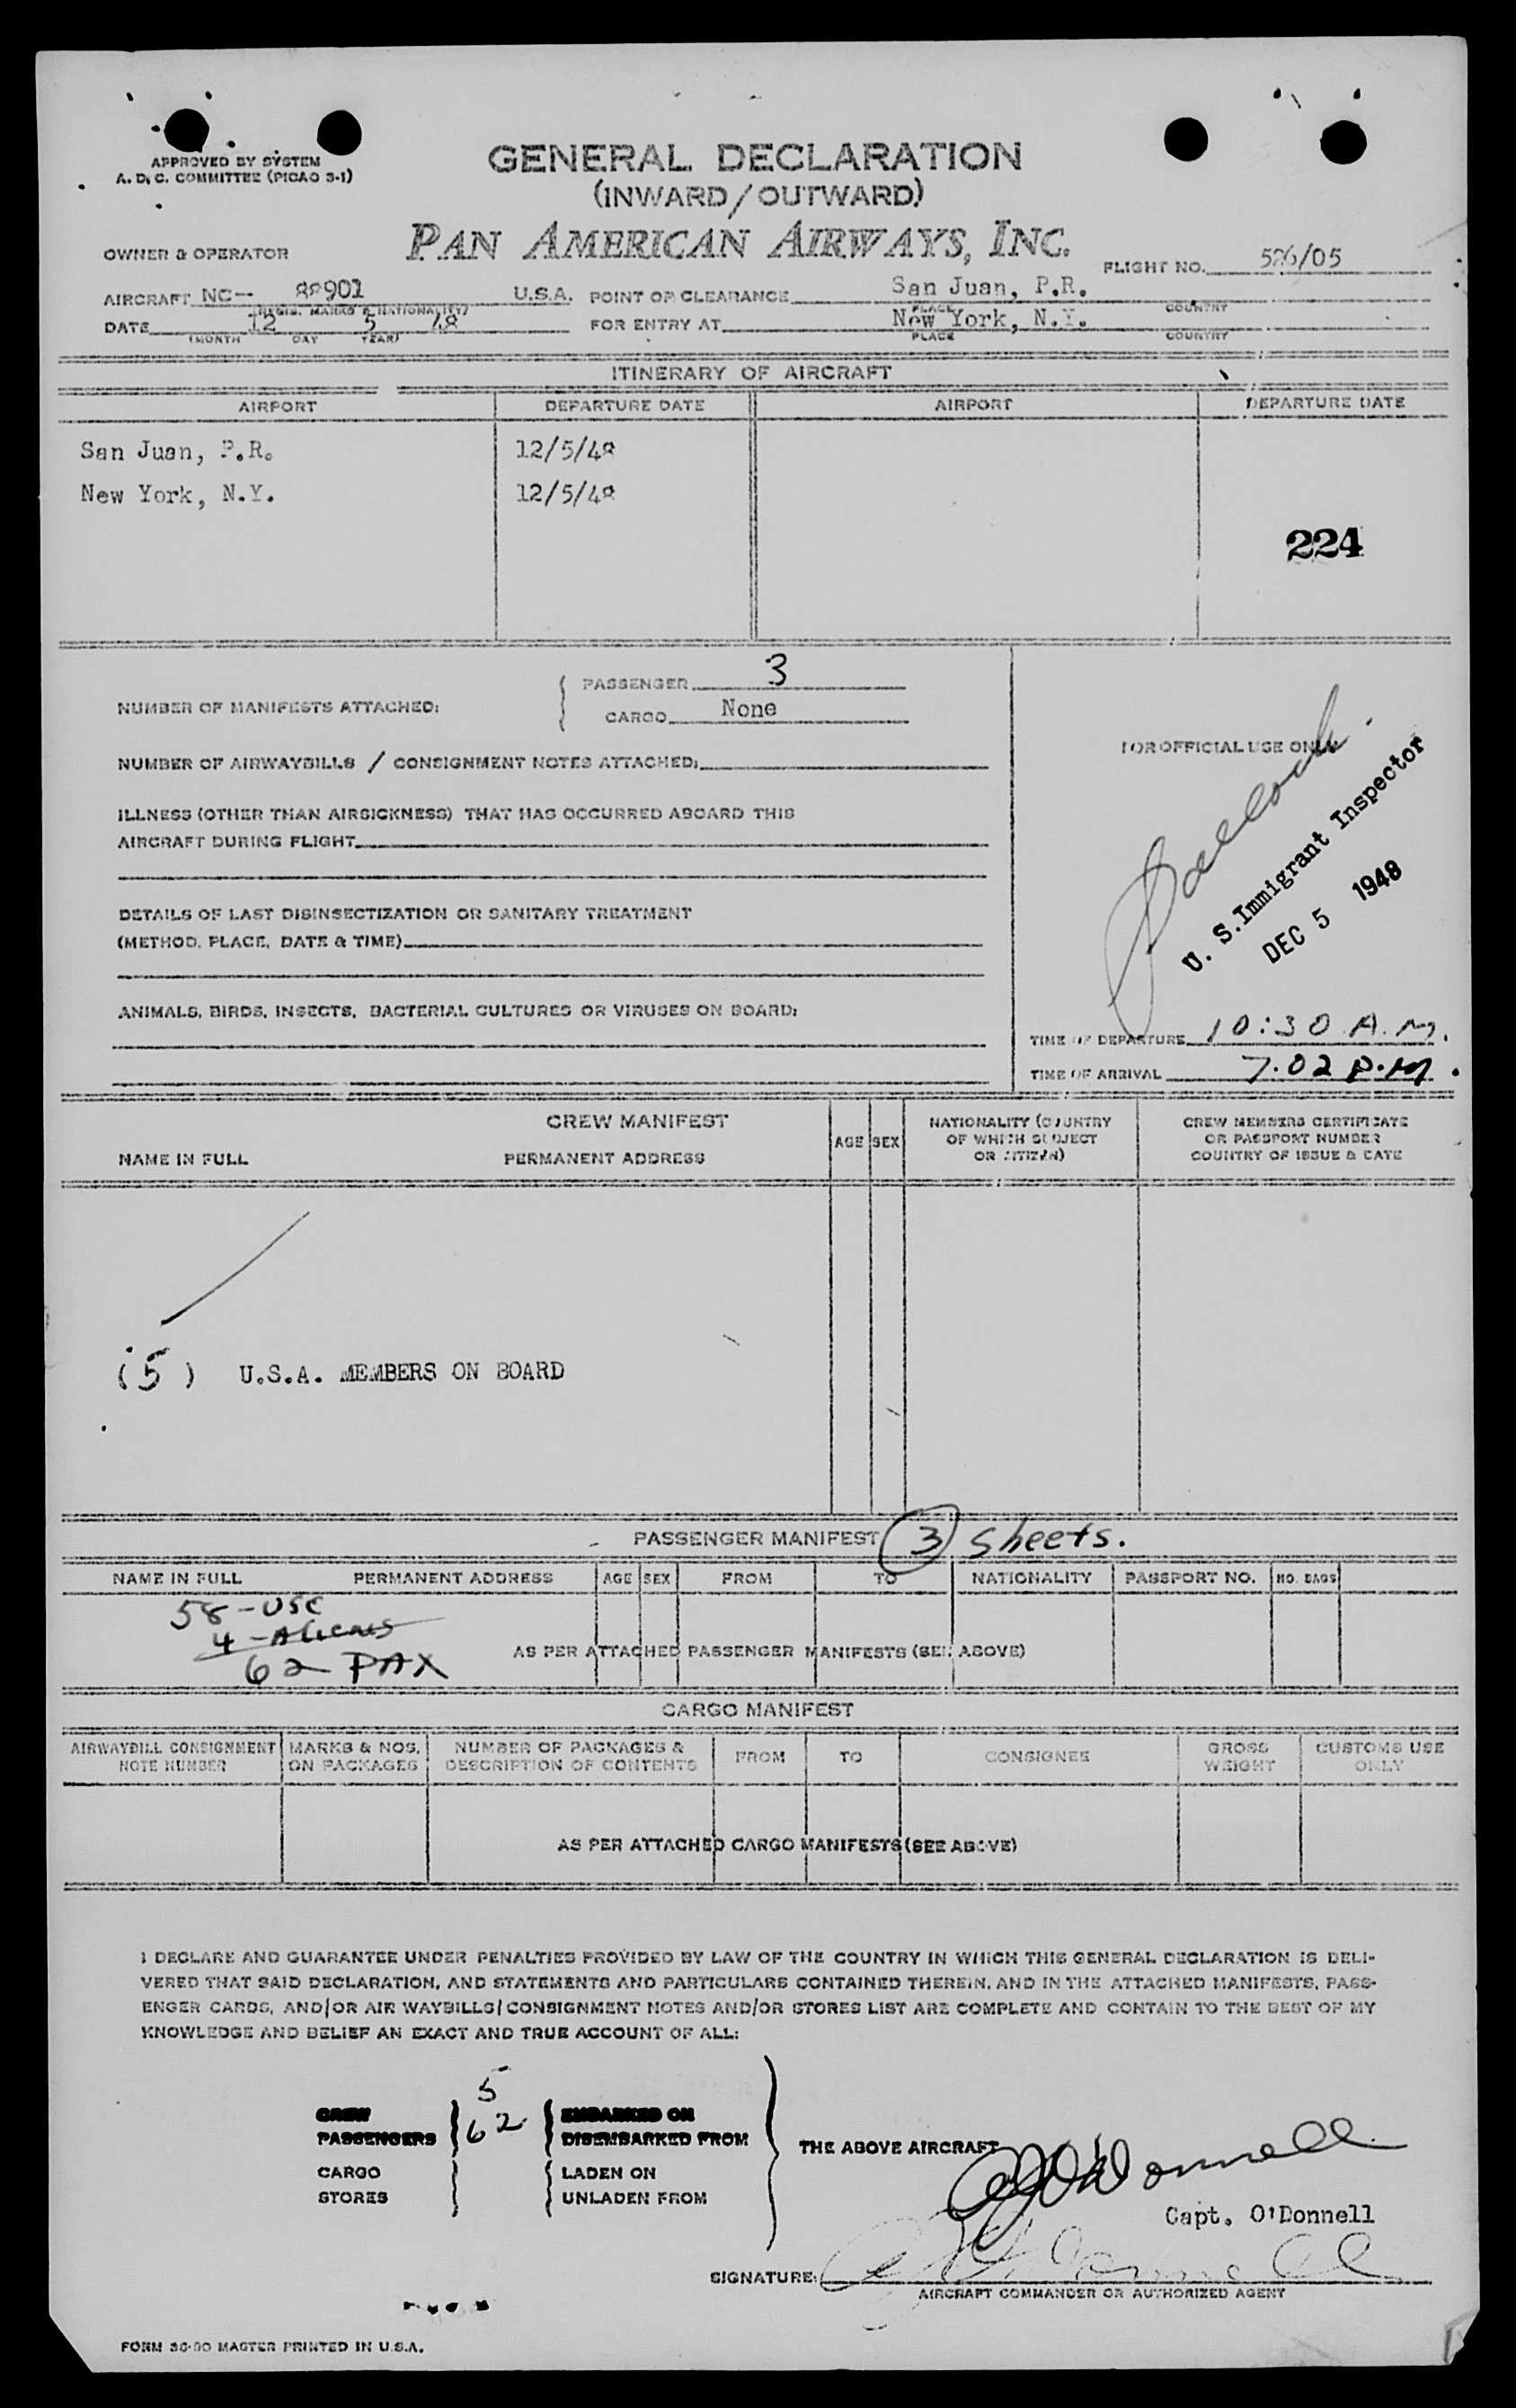 APPROVED BY SYSTEM
A. D. C. COMMITTEE (PICAO 3-1)
GENERAL DECLARATION
(INWARD/OUTWARD)
OWNER & OPERATOR
PAN AMERICAN AIRWAYS, INC.
FLIGHT NO. 526/05
AIRCRAFT NC- 88901 U.S.A.
(REGIS. MARKS & NATIONALITY)
POINT OF CLEARANCE San Juan, P.R.
PLACE COUNTRY
DATE 12 5 48
(MONTH DAY YEAR)
FOR ENTRY AT New York, N.Y.
PLACE COUNTRY
ITINERARY OF AIRCRAFT
AIRPORT DEPARTURE DATE AIRPORT DEPARTURE DATE
San Juan, P.R. 12/5/48
New York, N.Y. 12/5/48
224
NUMBER OF MANIFESTS ATTACHED:
PASSENGER 3
CARGO None
NUMBER OF AIRWAYBILLS / CONSIGNMENT NOTES ATTACHED:
ILLNESS (OTHER THAN AIRSICKNESS) THAT HAS OCCURRED ABOARD THIS
AIRCRAFT DURING FLIGHT
DETAILS OF LAST DISINSECTIZATION OR SANITARY TREATMENT
(METHOD, PLACE, DATE & TIME)
ANIMALS, BIRDS, INSECTS, BACTERIAL CULTURES OR VIRUSES ON BOARD:
FOR OFFICIAL USE ONLY
U. S. Immigrant Inspector
DEC 5 1948
TIME OF DEPARTURE 10:30 A.M.
TIME OF ARRIVAL 7.02 P.M.
CREW MANIFEST
NAME IN FULL PERMANENT ADDRESS AGE SEX
NATIONALITY (COUNTRY
OF WHICH SUBJECT
OR CITIZEN)
CREW MEMBERS CERTIFICATE
OR PASSPORT NUMBER
COUNTRY OF ISSUE & DATE
(5) U.S.A. MEMBERS ON BOARD
PASSENGER MANIFEST 3 sheets.
NAME IN FULL PERMANENT ADDRESS AGE SEX FROM TO NATIONALITY PASSPORT NO. NO. BAGS
58-USC
4-Aliens
62 PAX
AS PER ATTACHED PASSENGER MANIFESTS (SEE ABOVE)
CARGO MANIFEST
AIRWAYBILL CONSIGNMENT
NOTE NUMBER
MARKS & NOS.
ON PACKAGES
NUMBER OF PACKAGES &
DESCRIPTION OF CONTENTS
FROM TO CONSIGNEE
GROSS
WEIGHT
CUSTOMS USE
ONLY
AS PER ATTACHED CARGO MANIFESTS (SEE ABOVE)
I DECLARE AND GUARANTEE UNDER PENALTIES PROVIDED BY LAW OF THE COUNTRY IN WHICH THIS GENERAL DECLARATION IS DELI-
VERED THAT SAID DECLARATION, AND STATEMENTS AND PARTICULARS CONTAINED THEREIN, AND IN THE ATTACHED MANIFESTS, PASS-
ENGER CARDS, AND/OR AIR WAYBILLS/CONSIGNMENT NOTES AND/OR STORES LIST ARE COMPLETE AND CONTAIN TO THE BEST OF MY
KNOWLEDGE AND BELIEF AN EXACT AND TRUE ACCOUNT OF ALL:
CREW 5 EMBARKED ON
PASSENGERS 62 DISEMBARKED FROM
CARGO LADEN ON
STORES UNLADEN FROM
THE ABOVE AIRCRAFT
Capt. O'Donnell
SIGNATURE:
AIRCRAFT COMMANDER OR AUTHORIZED AGENT
FORM 36-90 MASTER PRINTED IN U.S.A.